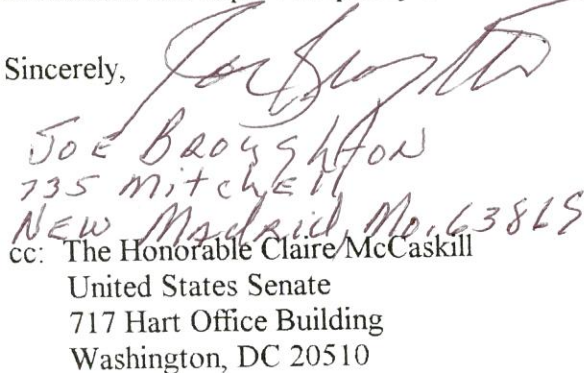 Sincerely,
Joe Broughton
735 Mitchell
New Madrid, Mo. 63869
cc: The Honorable Claire McCaskill
United States Senate
717 Hart Office Building
Washington, DC 20510